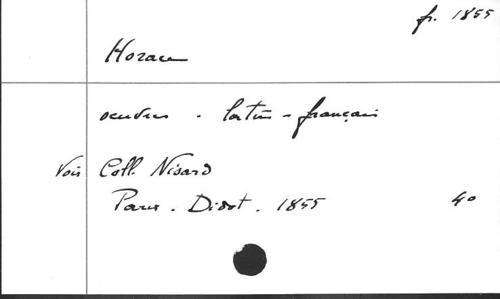 fr. 1855
Horace
oeuvres - latin - français
Voir Coll. Nisard
Paris - Didot. 1855 4o